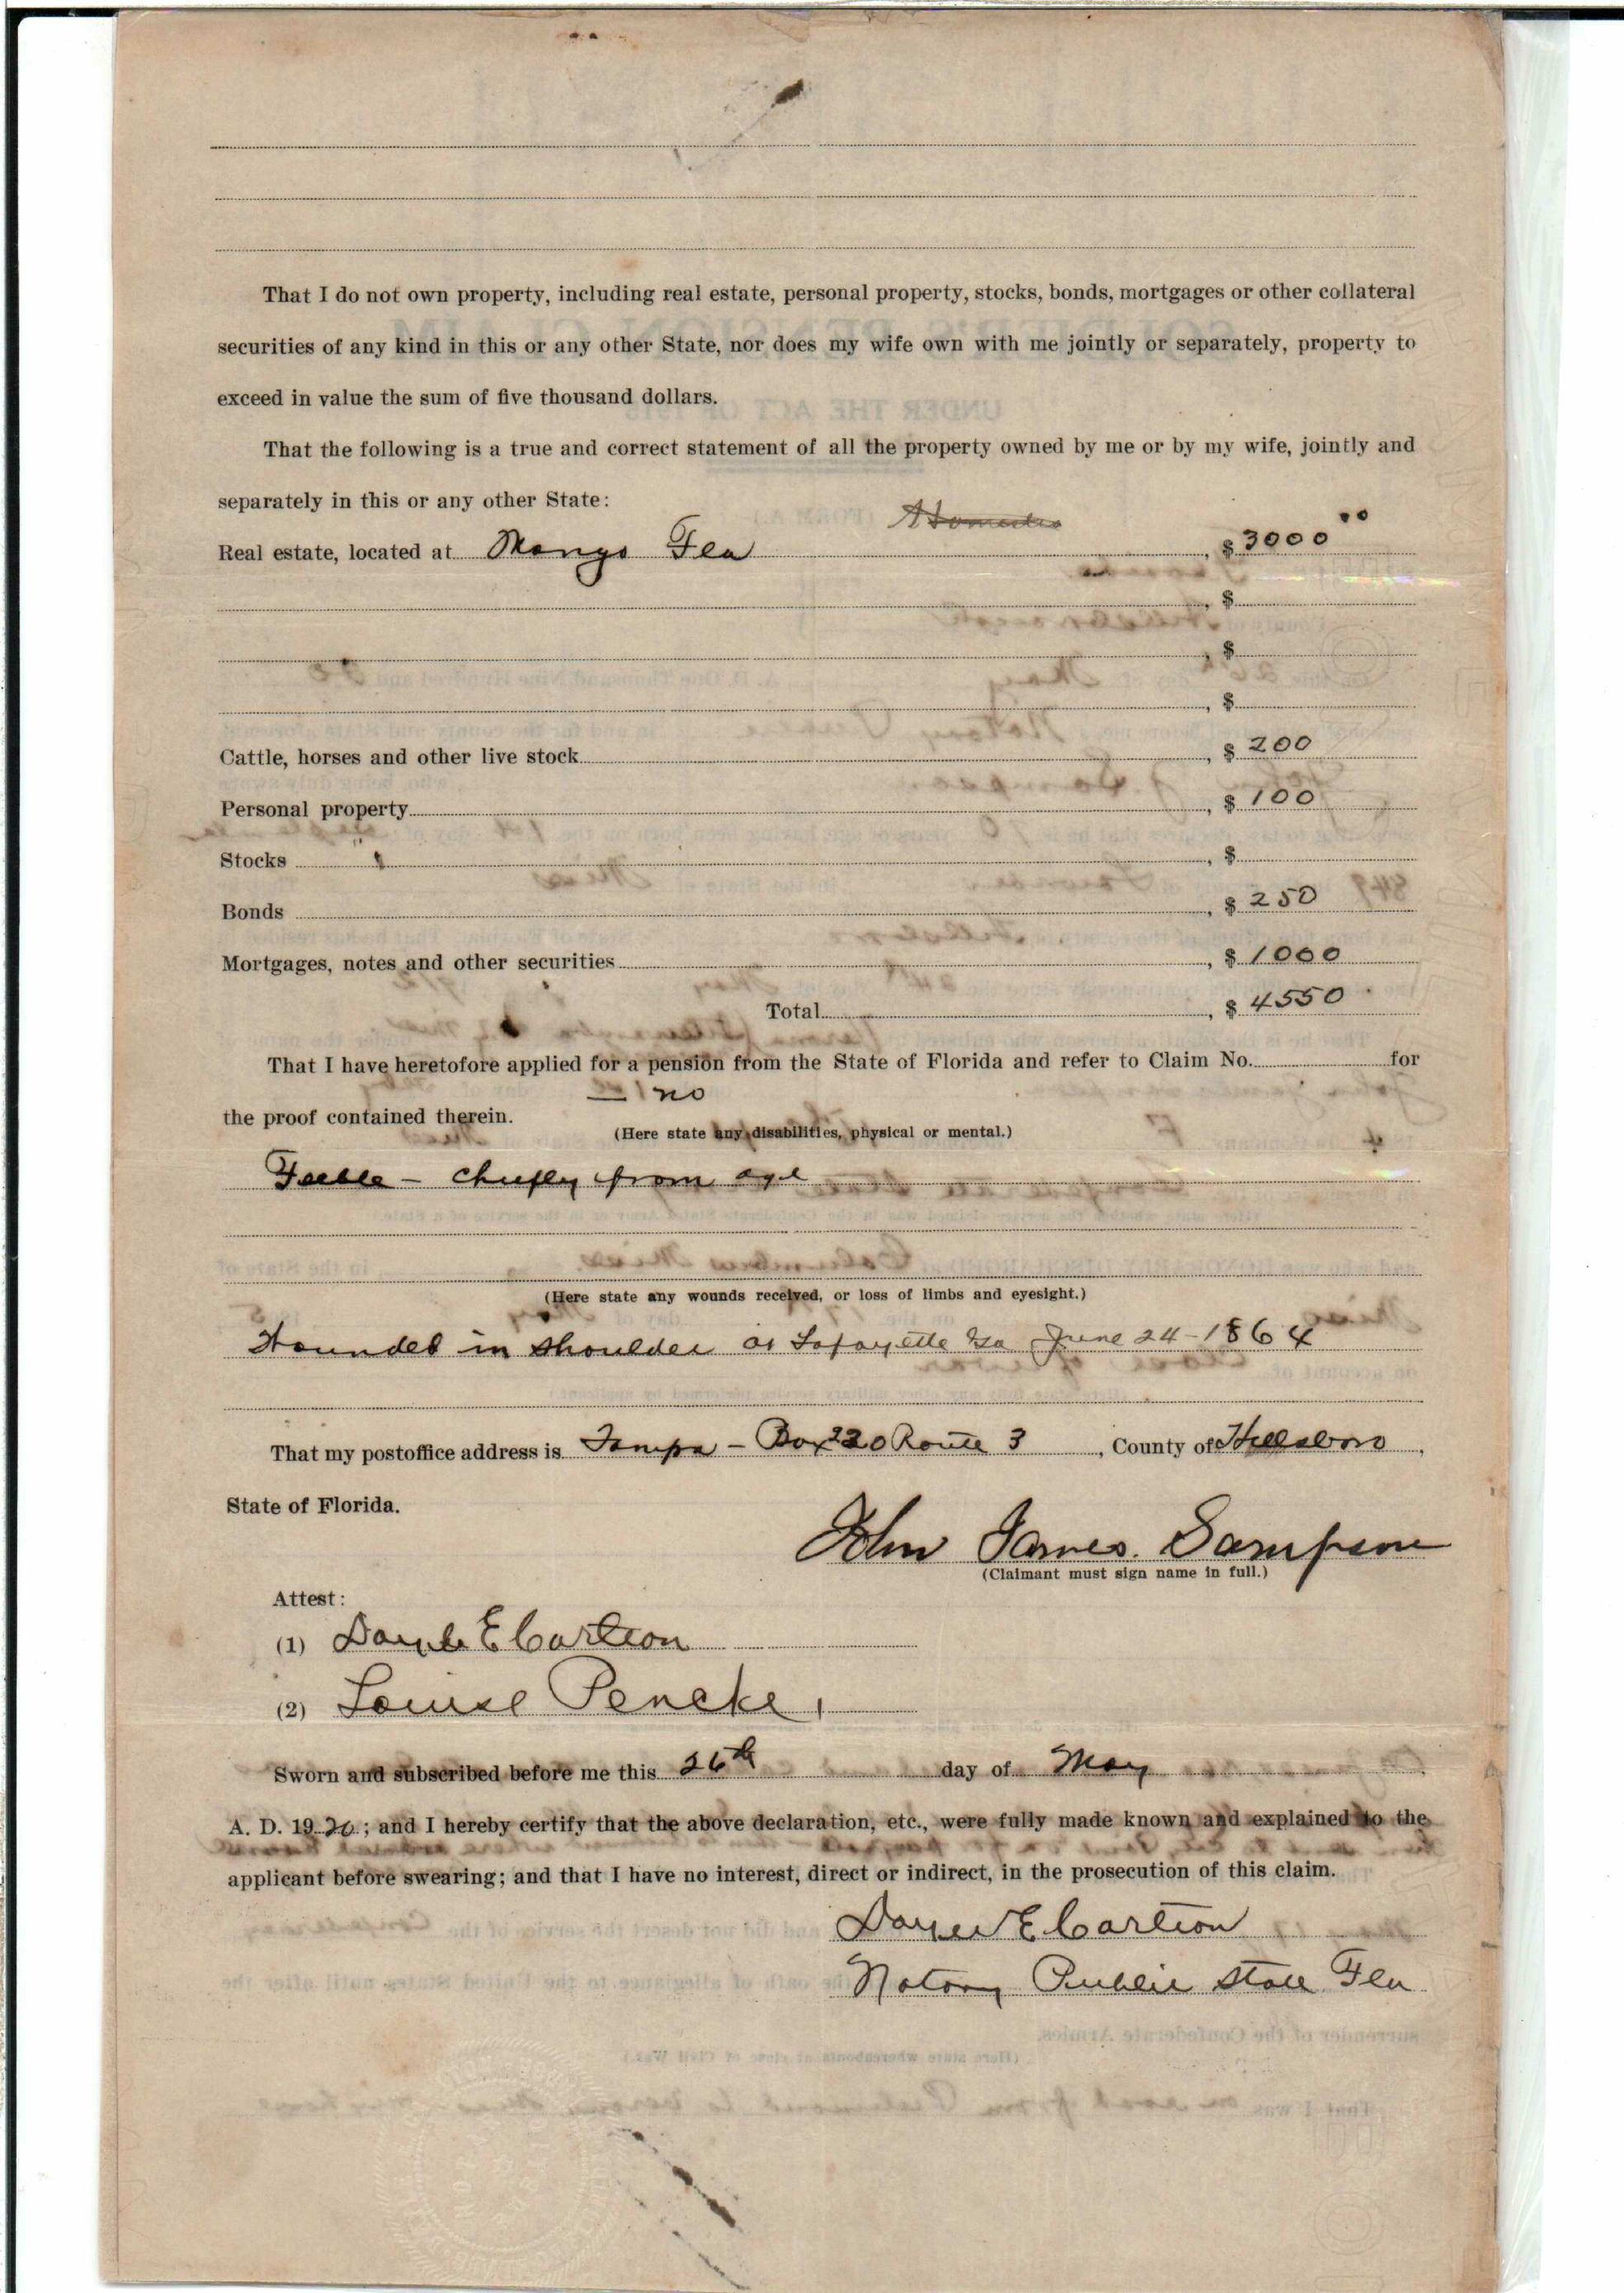 That I do not own property, including real estate, personal property, stocks, bonds, mortgages or other collateral
securities of any kind in this or any other State, nor does my wife own with me jointly or separately, property to
exceed in value the sum of five thousand dollars.
That the following is a true and correct statement of all the property owned by me or by my wife, jointly and
separately in this or any other State:
Real estate, located at Mango Fla, $ 3000 00
, $
, $
, $
Cattle, horses and other live stock, $ 200
Personal property, $ 100
Stocks, $
Bonds, $ 250
Mortgages, notes and other securities, $ 1000
Total, $ 4550
That I have heretofore applied for a pension from the State of Florida and refer to Claim No. for
no
the proof contained therein.
(Here state any disabilities, physical or mental.)
Feeble - chiefly from age
(Here state any wounds received, or loss of limbs and eyesight.)
Wounded in shoulder at Lafayette Ga June 24-1864
That my postoffice address is Tampa - Box 220 Route 3, County of Hillsboro,
State of Florida.
John James Sampson
(Claimant must sign name in full.)
Attest:
(1) E Carlton
(2) Louise Pencke
Sworn and subscribed before me this 26th day of May
A. D. 1920; and I hereby certify that the above declaration, etc., were fully made known and explained to the
applicant before swearing; and that I have no interest, direct or indirect, in the prosecution of this claim.
E Carlton
Notary Public State Fla